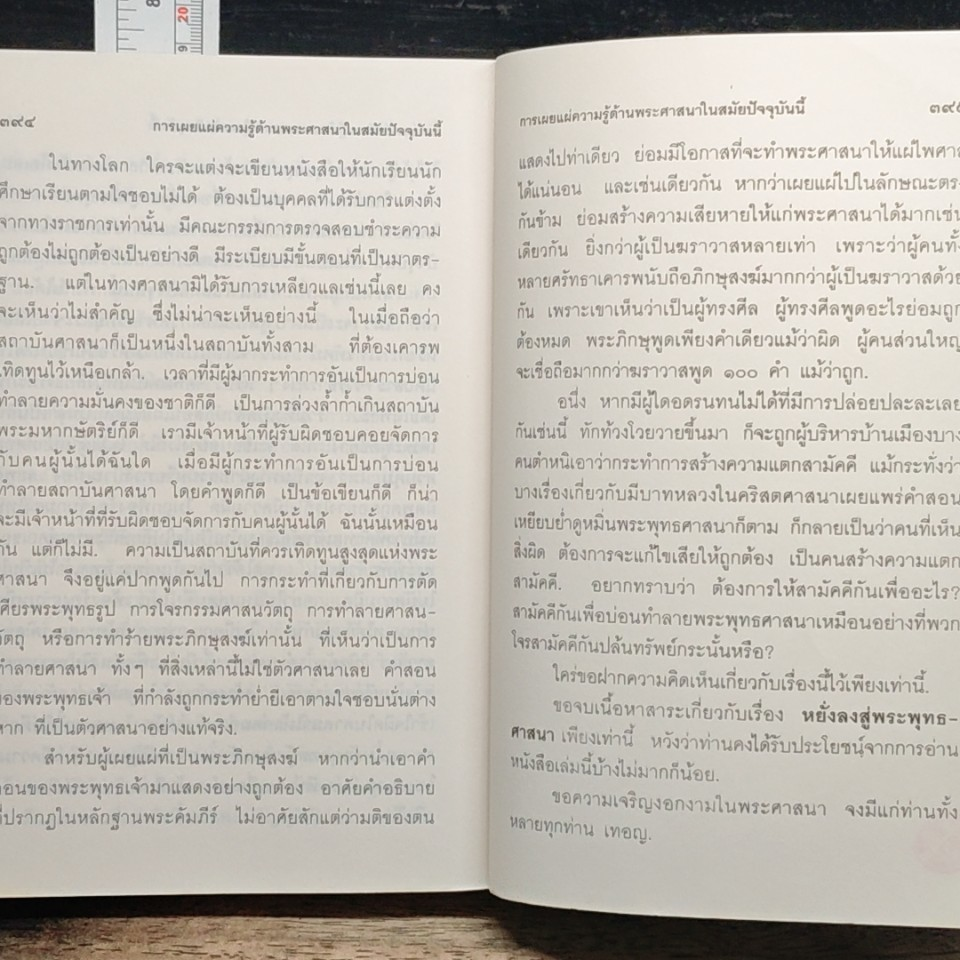 8
20
19
๓๙๔ การเผยแผ่ความรู้ด้านพระศาสนาในสมัยปัจจุบันนี้
ในทางโลก ใครจะแต่งจะเขียนหนังสือให้นักเรียนนัก
ศึกษาเรียนตามใจชอบไม่ได้ ต้องเป็นบุคคลที่ได้รับการแต่งตั้ง
จากทางราชการเท่านั้น มีคณะกรรมการตรวจสอบชำระความ
ถูกต้องไม่ถูกต้องเป็นอย่างดี มีระเบียบมีขั้นตอนที่เป็นมาตร-
ฐาน. แต่ในทางศาสนามิได้รับการเหลียวแลเช่นนี้เลย คง
จะเห็นว่าไม่สำคัญ ซึ่งไม่น่าจะเห็นอย่างนี้ ในเมื่อถือว่า
สถาบันศาสนาก็เป็นหนึ่งในสถาบันทั้งสาม ที่ต้องเคารพ
เทิดทูนไว้เหนือเกล้า. เวลาที่มีผู้มากระทำการอันเป็นการบ่อน
ทำลายความมั่นคงของชาติก็ดี เป็นการล่วงล้ำก้ำเกินสถาบัน
พระมหากษัตริย์ก็ดี เรามีเจ้าหน้าที่ผู้รับผิดชอบคอยจัดการ
กับคนผู้นั้นได้ฉันใด เมื่อมีผู้กระทำการอันเป็นการบ่อน
ทำลายสถาบันศาสนา โดยคำพูดก็ดี เป็นข้อเขียนก็ดี ก็น่า
จะมีเจ้าหน้าที่ที่รับผิดชอบจัดการกับคนผู้นั้นได้ ฉันนั้นเหมือน
กัน แต่ก็ไม่มี. ความเป็นสถาบันที่ควรเทิดทูนสูงสุดแห่งพระ
ศาสนา จึงอยู่แค่ปากพูดกันไป การกระทำที่เกี่ยวกับการตัด
เศียรพระพุทธรูป การโจรกรรมศาสนวัตถุ การทำลายศาสน-
วัตถุ หรือการทำร้ายพระภิกษุสงฆ์เท่านั้น ที่เห็นว่าเป็นการ
ทำลายศาสนา ทั้งๆ ที่สิ่งเหล่านี้ไม่ใช่ตัวศาสนาเลย คำสอน
ของพระพุทธเจ้า ที่กำลังถูกกระทำย่ำยีเอาตามใจชอบนั่นต่าง
หาก ที่เป็นตัวศาสนาอย่างแท้จริง.
สำหรับผู้เผยแผ่ที่เป็นพระภิกษุสงฆ์ หากว่านำเอาคำ
สอนของพระพุทธเจ้ามาแสดงอย่างถูกต้อง อาศัยคำอธิบาย
ที่ปรากฏในหลักฐานพระคัมภีร์ ไม่อาศัยสักแต่ว่ามติของตน
การเผยแผ่ความรู้ด้านพระศาสนาในสมัยปัจจุบันนี้ ๓๙๕
แสดงไปท่าเดียว ย่อมมีโอกาสที่จะทำพระศาสนาให้แผ่ไพศาล
ได้แน่นอน และเช่นเดียวกัน หากว่าเผยแผ่ไปในลักษณะตรง
กันข้าม ย่อมสร้างความเสียหายให้แก่พระศาสนาได้มากเช่น
เดียวกัน ยิ่งกว่าผู้เป็นฆราวาสหลายเท่า เพราะว่าผู้คนทั้ง
หลายศรัทธาเคารพนับถือภิกษุสงฆ์มากกว่าผู้เป็นฆราวาสด้วย
กัน เพราะเขาเห็นว่าเป็นผู้ทรงศีล ผู้ทรงศีลพูดอะไรย่อมถูก
ต้องหมด พระภิกษุพูดเพียงคำเดียวแม้ว่าผิด ผู้คนส่วนใหญ่
จะเชื่อถือมากกว่าฆราวาสพูด ๑๐๐ คำ แม้ว่าถูก.
อนึ่ง หากมีผู้ใดอดรนทนไม่ได้ที่มีการปล่อยปละละเลย
กันเช่นนี้ ทักท้วงโวยวายขึ้นมา ก็จะถูกผู้บริหารบ้านเมืองบาง
คนตำหนิเอาว่ากระทำการสร้างความแตกสามัคคี แม้กระทั่งว่า
บางเรื่องเกี่ยวกับมีบาทหลวงในคริสตศาสนาเผยแพร่คำสอน
เหยียบย่ำดูหมิ่นพระพุทธศาสนาก็ตาม ก็กลายเป็นว่าคนที่เห็น
สิ่งผิด ต้องการจะแก้ไขเสียให้ถูกต้อง เป็นคนสร้างความแตก
สามัคคี. อยากทราบว่า ต้องการให้สามัคคีกันเพื่ออะไร?
สามัคคีกันเพื่อบ่อนทำลายพระพุทธศาสนาเหมือนอย่างที่พวก
โจรสามัคคีกันปล้นทรัพย์กระนั้นหรือ?
ใคร่ขอฝากความคิดเห็นเกี่ยวกับเรื่องนี้ไว้เพียงเท่านี้.
ขอจบเนื้อหาสาระเกี่ยวกับเรื่อง หยั่งลงสู่พระพุทธ-
ศาสนา เพียงเท่านี้ หวังว่าท่านคงได้รับประโยชน์จากการอ่าน
หนังสือเล่มนี้บ้างไม่มากก็น้อย.
ขอความเจริญงอกงามในพระศาสนา จงมีแก่ท่านทั้ง
หลายทุกท่าน เทอญ.